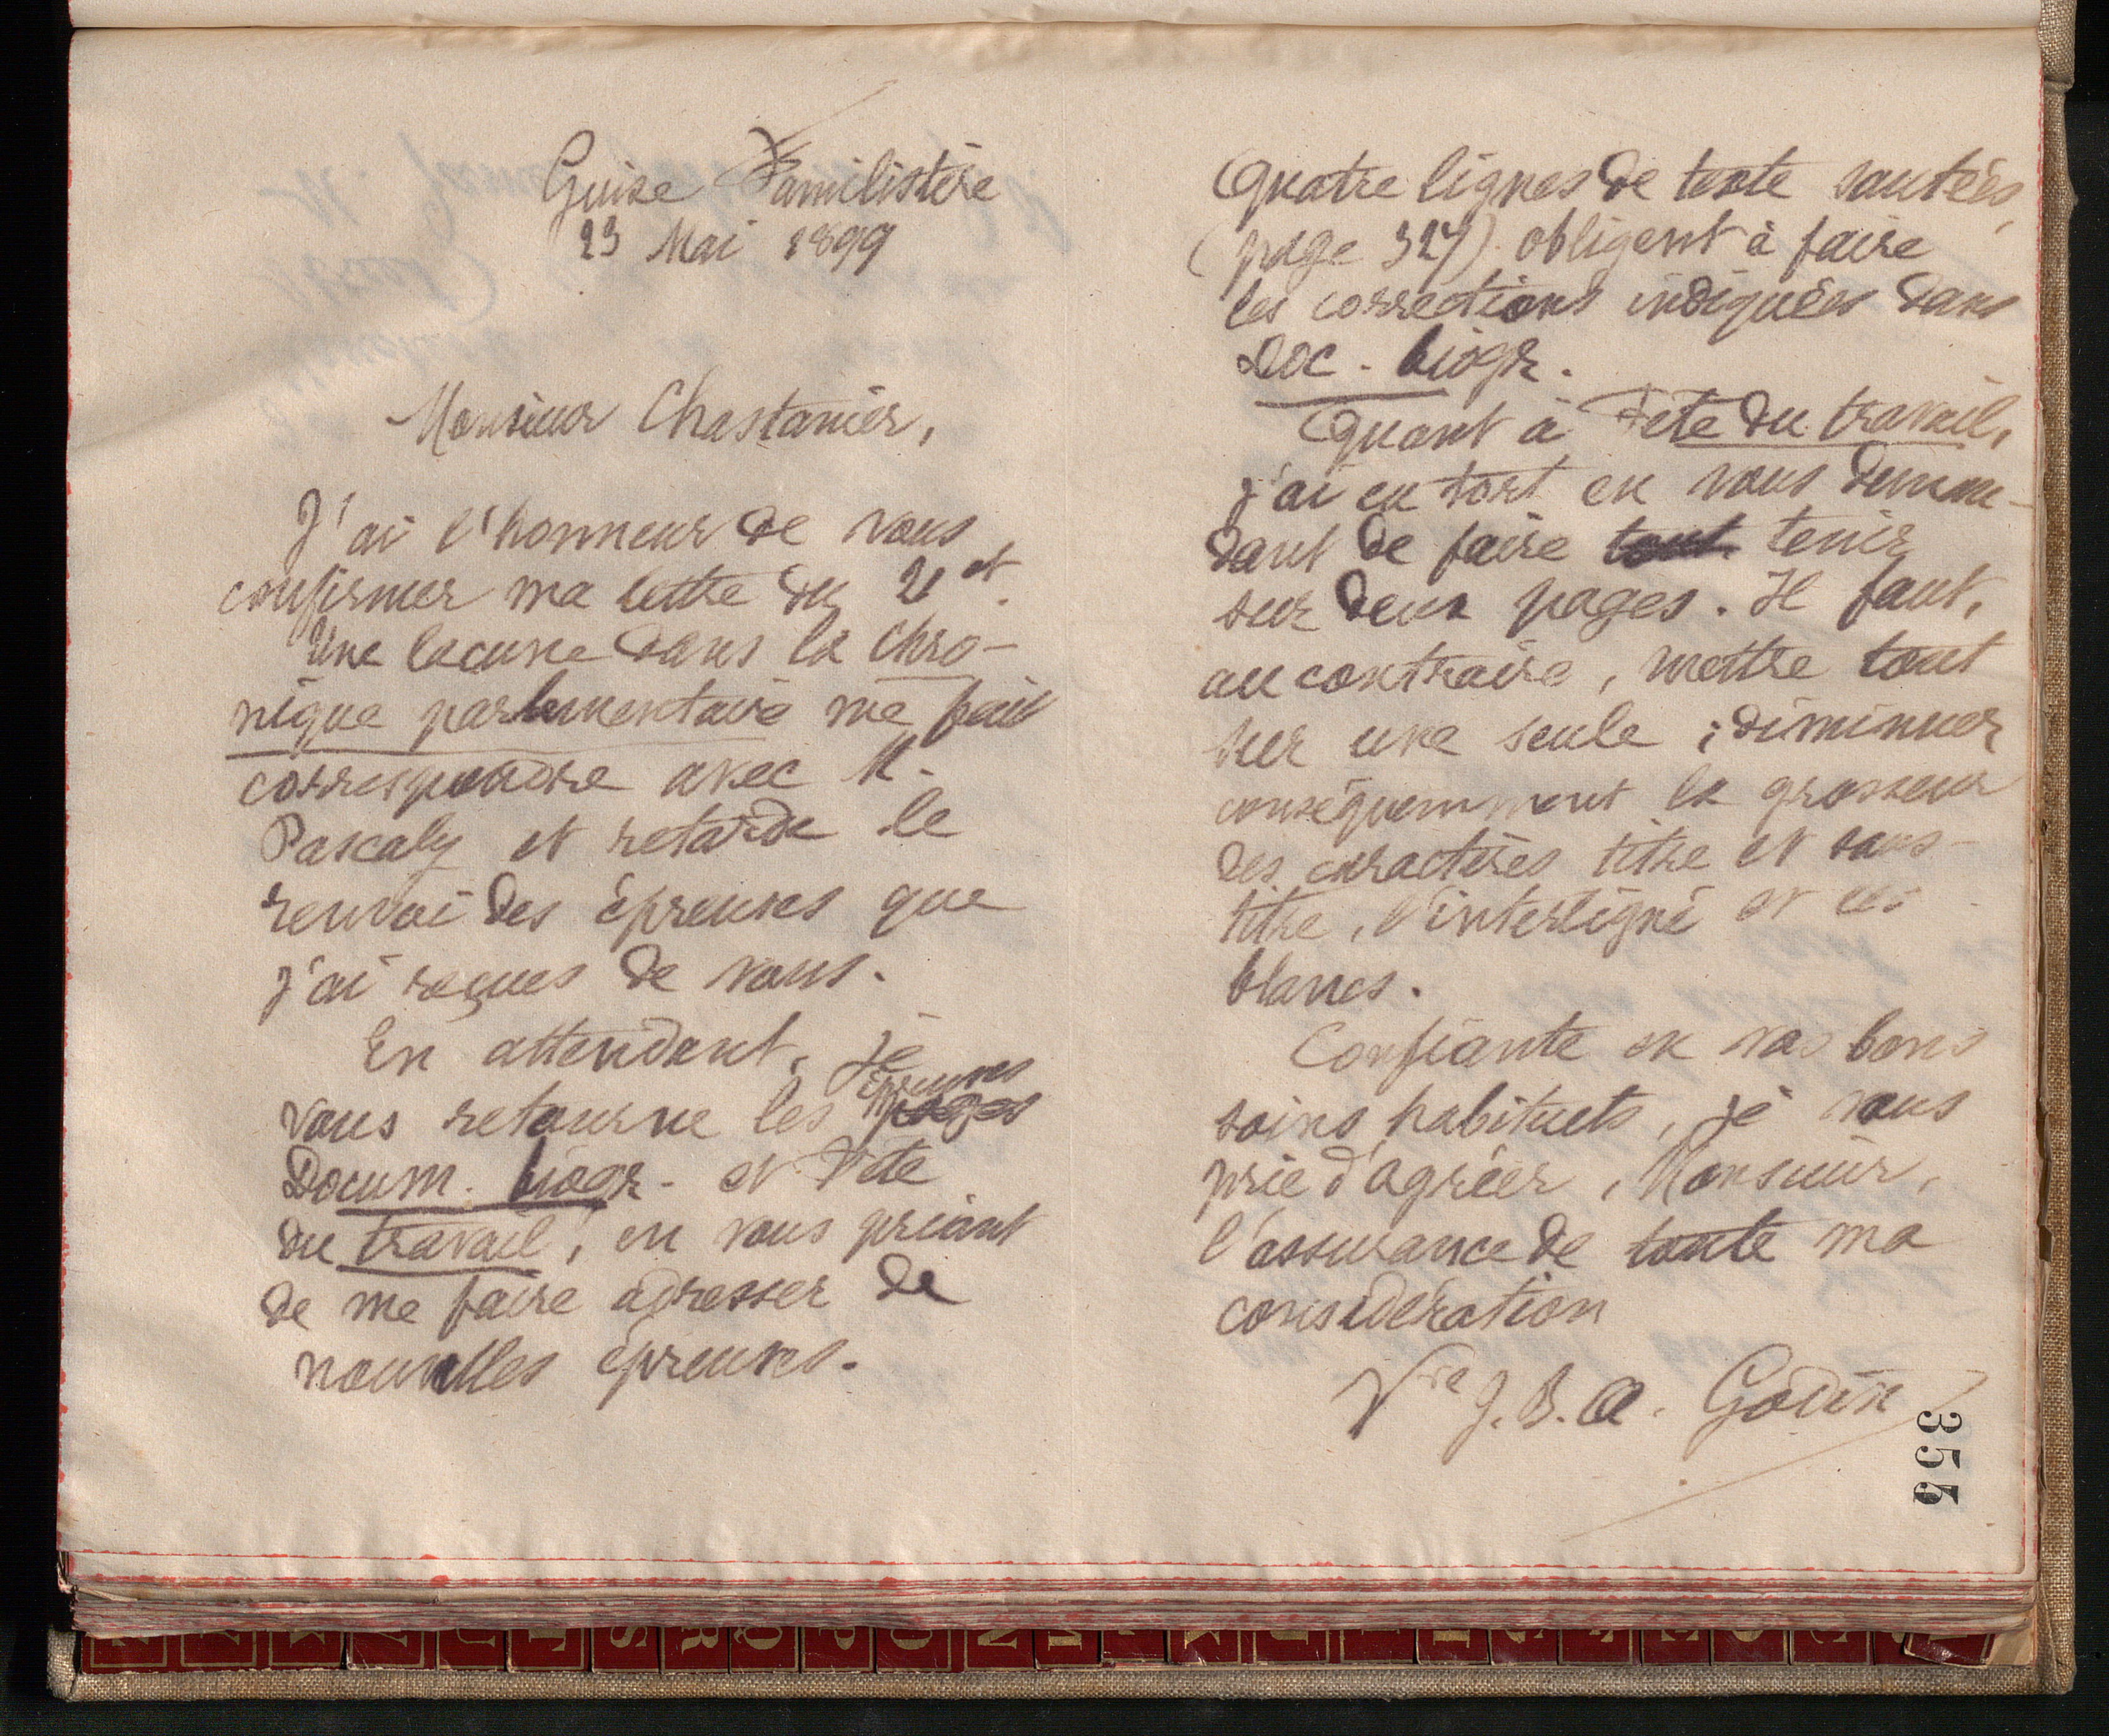 Guise Familistère
23 Mai 1899
Monsieur Chastanier,
J'ai l'honneur de vous
confirmer ma lettre du 21 ct.
Une lacune dans la Chro-
nique parlementaire me fait
correspondre avec M.
Pascaly et retarde le
renvoi des épreuves que
j'ai reçues de vous.
En attendant, je
vous retourne les pages épreuves
Docum. biogr. et Fête
du travail, en vous priant
de me faire adresser de
nouvelles épreuves.
Quatre lignes de texte sautées,
(page 327) obligent à faire
les corrections indiquées dans
Doc. biogr.
Quant à Fête du travail,
j'ai eu tort en vous deman-
dant de faire tout tenir
sur deux pages. Il faut,
au contraire, mettre tout
sur une seule ; diminuer
conséquemment la grosseur
des caractères titre et sous-
titre, l'interligne et les
blancs.
Confiante en vos bons
soins habituels, je vous
prie d'agréer, Monsieur,
l'assurance de toute ma
considération
Vve J. B. A. Godin
355